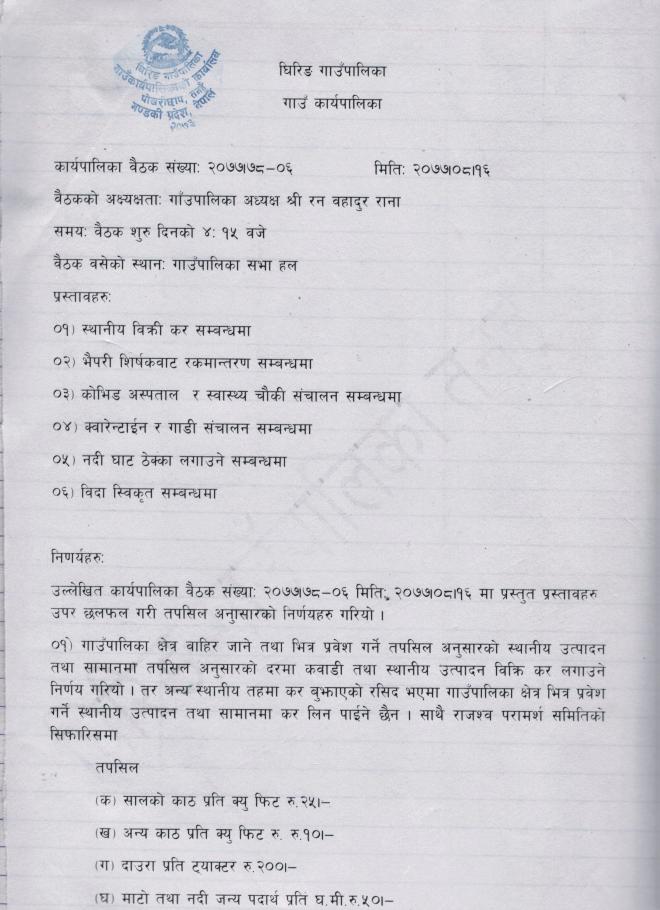 घिरिङ गाउँपालिका
गाउँकार्यपालिकाको कार्यालय
पोखरीछाप, तनहुँ
गण्डकी प्रदेश, नेपाल
२०७३
घिरिङ गाउँपालिका
गाउँ कार्यपालिका
कार्यपालिका बैठक संख्याः २०७७।७८-०६ मितिः २०७७।०८।१६
वैठकको अक्ष्यक्षताः गाँउपालिका अध्यक्ष श्री रन वहादुर राना
समयः वैठक शुरु दिनको ४: १५ वजे
वैठक वसेको स्थानः गाउँपालिका सभा हल
प्रस्तावहरुः
०१) स्थानीय विक्री कर सम्बन्धमा
०२) भैपरी शिर्षकवाट रकमान्तरण सम्बन्धमा
०३) कोभिड अस्पताल र स्वास्थ्य चौकी संचालन सम्बन्धमा
०४) क्वारेन्टाईन र गाडी संचालन सम्बन्धमा
०५) नदी घाट ठेक्का लगाउने सम्बन्धमा
०६) विदा स्विकृत सम्बन्धमा
निर्णयहरुः
उल्लेखित कार्यपालिका वैठक संख्याः २०७७।७८-०६ मितिः २०७७।०८।१६ मा प्रस्तुत प्रस्तावहरु
उपर छलफल गरी तपसिल अनुासारको निर्णयहरु गरियो ।
०१) गाउँपालिका क्षेत्र वाहिर जाने तथा भित्र प्रवेश गर्ने तपसिल अनुसारको स्थानीय उत्पादन
तथा सामानमा तपसिल अनुसारको दरमा कवाडी तथा स्थानीय उत्पादन विक्रि कर लगाउने
निर्णय गरियो । तर अन्य स्थानीय तहमा कर बुझाएको रसिद भएमा गाउँपालिका क्षेत्र भित्र प्रवेश
गर्ने स्थानीय उत्पादन तथा सामानमा कर लिन पाईने छैन । साथै राजश्व परामर्श समितिको
सिफारिसमा
तपसिल
(क) सालको काठ प्रति क्यु फिट रु.२५।-
(ख) अन्य काठ प्रति क्यु फिट रु. रु.१०।-
(ग) दाउरा प्रति ट्याक्टर रु.२००।-
(घ) माटो तथा नदी जन्य पदार्थ प्रति घ.मी.रु.५०।-